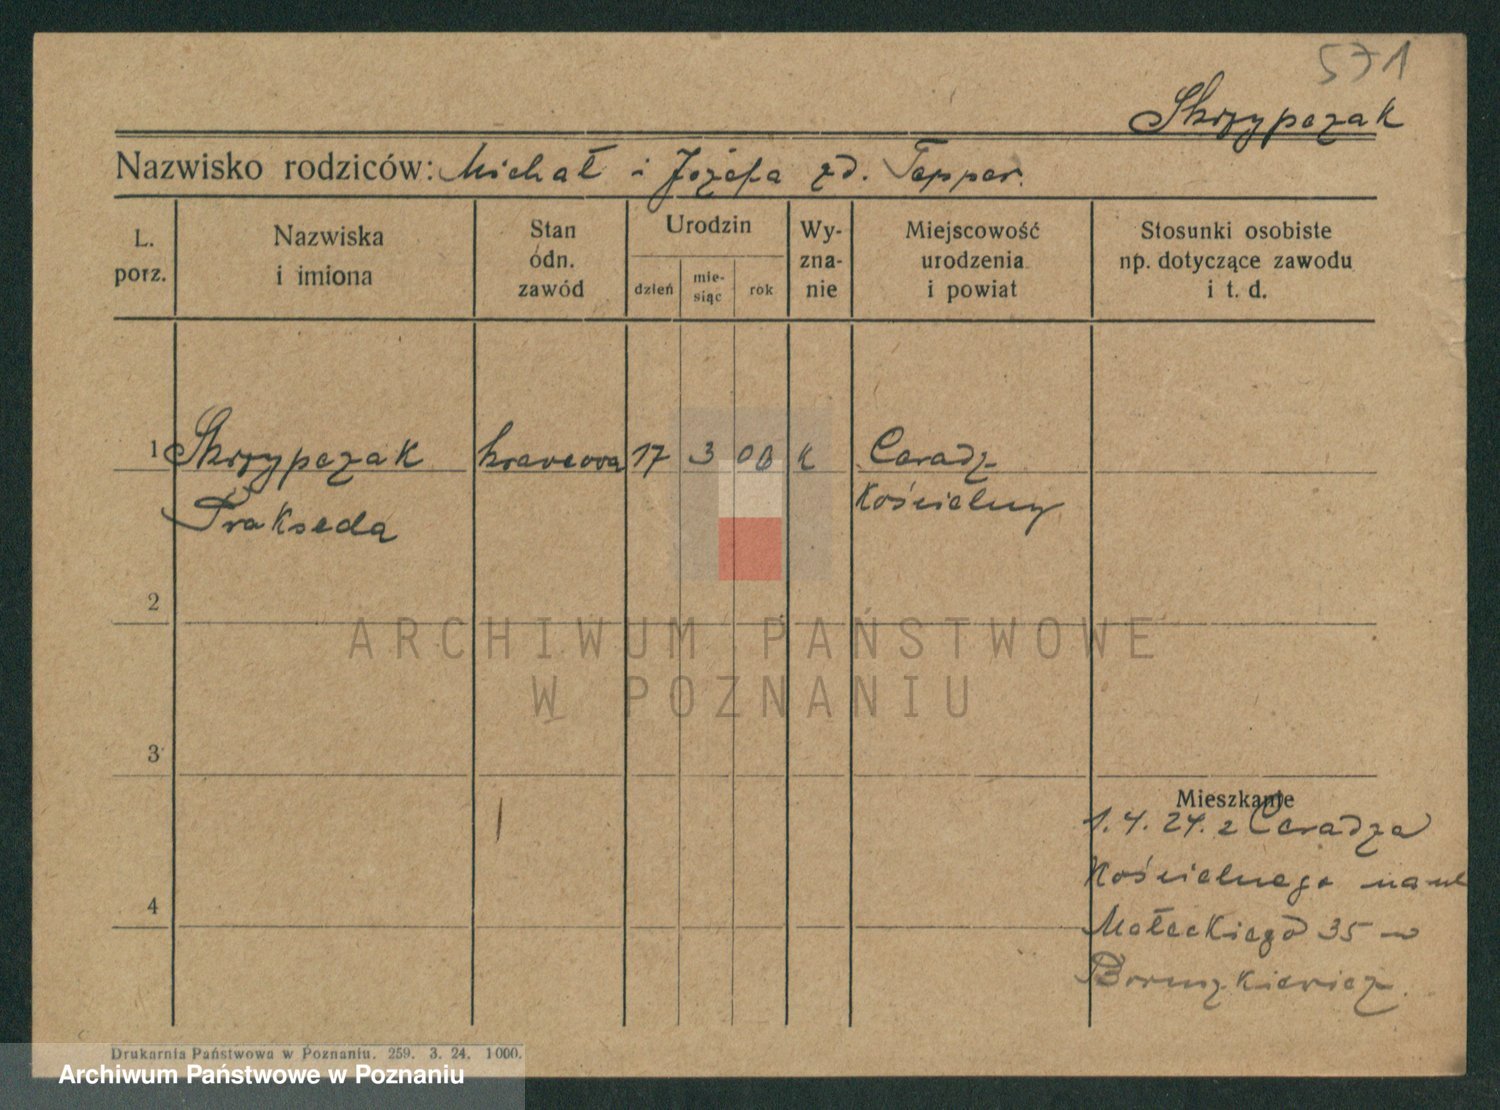 571
Skrzypczak
Nazwisko rodziców: Michał i Józefa zd. Tepper.
L. porz.
Nazwiska i imiona
Stan ódn. zawód
Urodzin
dzień
mie-siąc
rok
Wy-zna-nie
Miejscowość urodzenia i powiat
Stosunki osobiste np. dotyczące zawodu i t. d.
1 Skrzypczak krawcowa 17 3 00 k Ceradz
Prakseda Kościelny
2
ARCHIWUM PAŃSTWOWE
W POZNANIU
3
Mieszkanie
1.4.24. z Ceradza
Kościelnego na ul
4
Małeckiego 35 w
Boruszkiewicz.
Drukarnia Państwowa w Poznaniu. 259. 3. 24. 1000.
Archiwum Państwowe w Poznaniu